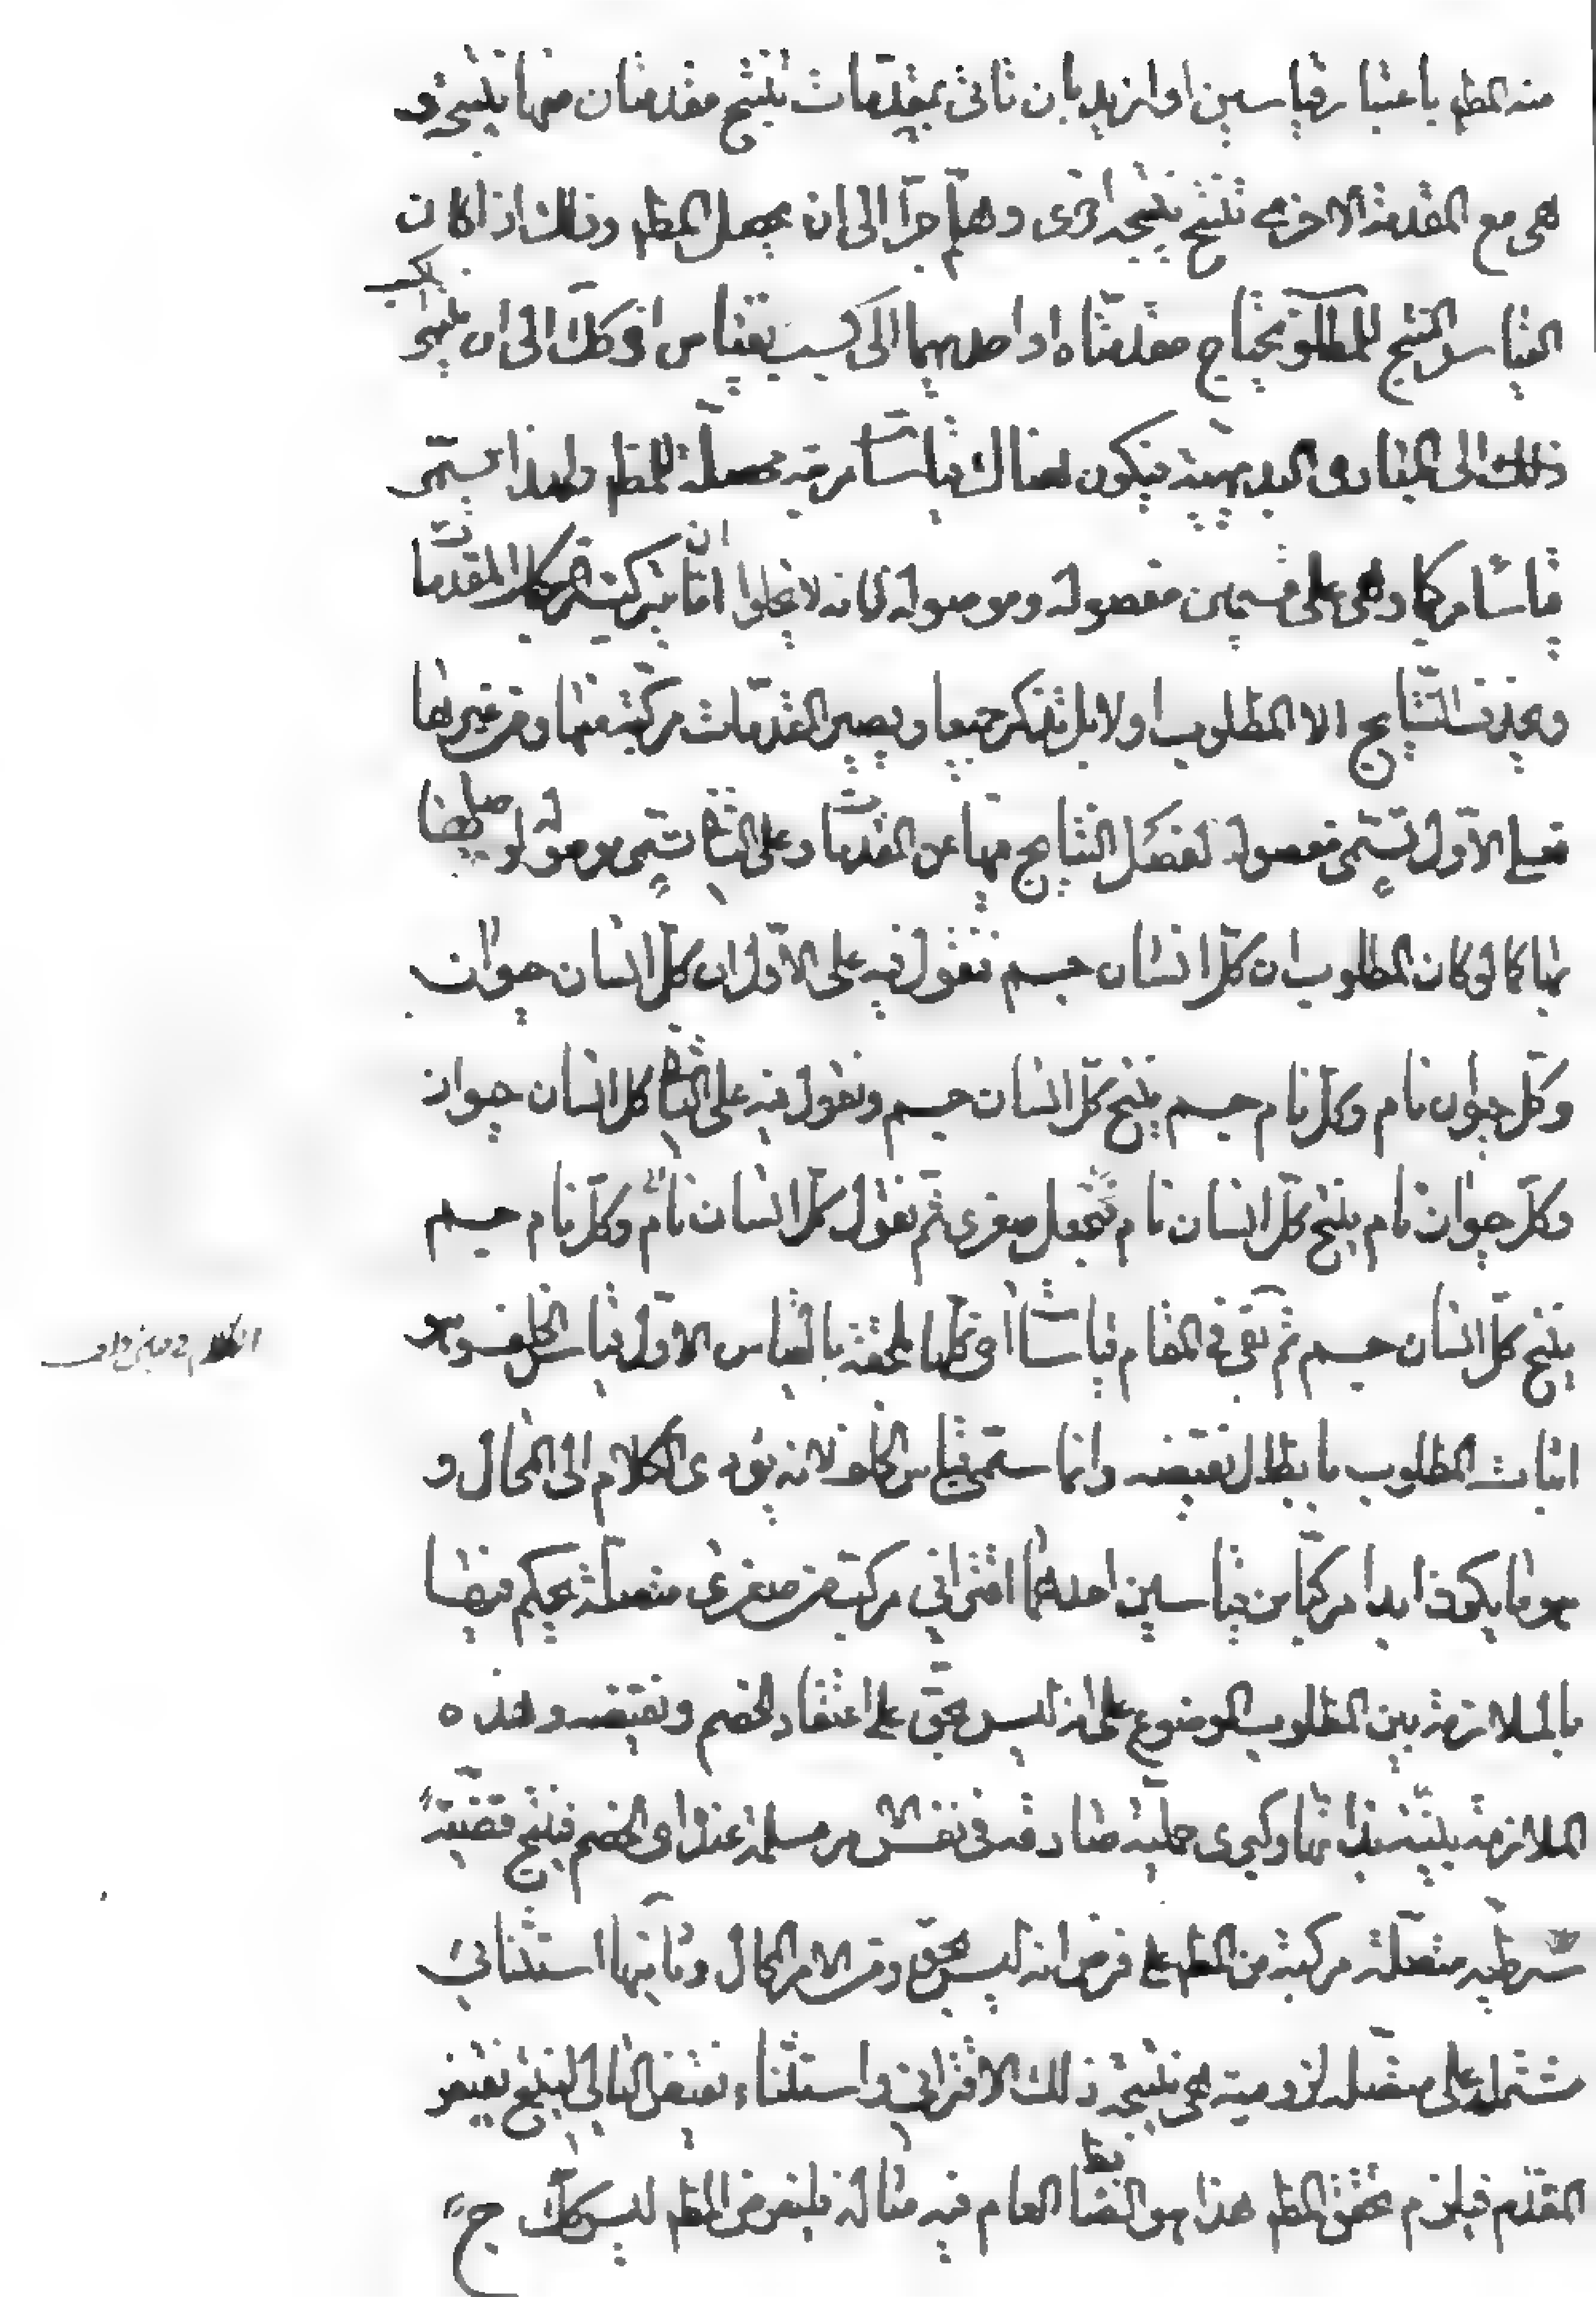 منه المظ باعتبار قياسين او ازيد بان تاتى بمقدمات ينتج مقدمتان منها نتيجة و
هى مع المقدمة الاخرى تنتج نتيجة اخرى وهلم جرا الى ان يحصل المظ وذلك اذا كان
القياس المنتج للمطلوب يحتاج مقدمتاه او احديهما الى كسب بقياس اخر وكك الى ان ينتهى
ذلك الى المبادى البديهية فيكون هناك قياسات مرتبة محصلة للمظ ولهذا يسمى
قياسا مركبا وهى على قسمين مفصولة وموصولة لانه لا يخلوا اما ان تركيبه المقدمات
ويحذف النتايج الا المطلوب اولا بل تذكر جميعا ويصير المقدمات مركبة منها ومن غيرها
فعلى الاول تسمى مفصولة لفصل النتايج منها عن المقدمات وعلى الثانى تسمى موصولة لوصلها
بها كما لو كان المطلوب ان كل انسان جسم فنقول فيه على الاول ان كل انسان حيوان
وكل حيوان نام وكل نام جسم ينتج كل انسان جسم ونقول فيه على الثانى كل انسان حيوان
وكل حيوان نام ينتج كل انسان نام فتجعل صغرى ثم نقول كل انسان نام وكل نام جسم
ينتج كل انسان جسم ثم بقى فى المقام قياسات اخر كلها ملحقة بالقياس الاول قياس الخلف وهو
اثبات المطلوب بابطال نقيضه وانما سمى قياس الخلف لانه يؤدى الكلام الى المحال و
هو ما يكون ابدا مركبا من قياسين احدهما اقترانى مركب من صغرى متصلة يحكم فيها
بالملازمة بين المطلوب الموضوع على انه ليس بحق على اعتقاد الخصم ونقيضه وهذه
الملازمة بينة بذاتها وكبرى حملية صادقة فى نفس الامر مسلمة عند الخصم فينتج قضية
شرطية متصلة مركبة من المظ على فرض انه ليس بحق ومن الامر المحال وثانيها استثنائى
مشتمل على متصلة لزومية هى نتيجة ذلك الاقترانى واستثناء نقيض التالى لينتج نقيض
المقدم فيلزم تحقق المظ هذا هو الضابط العام فيه مثاله فليفرض المظ ليس كل ج